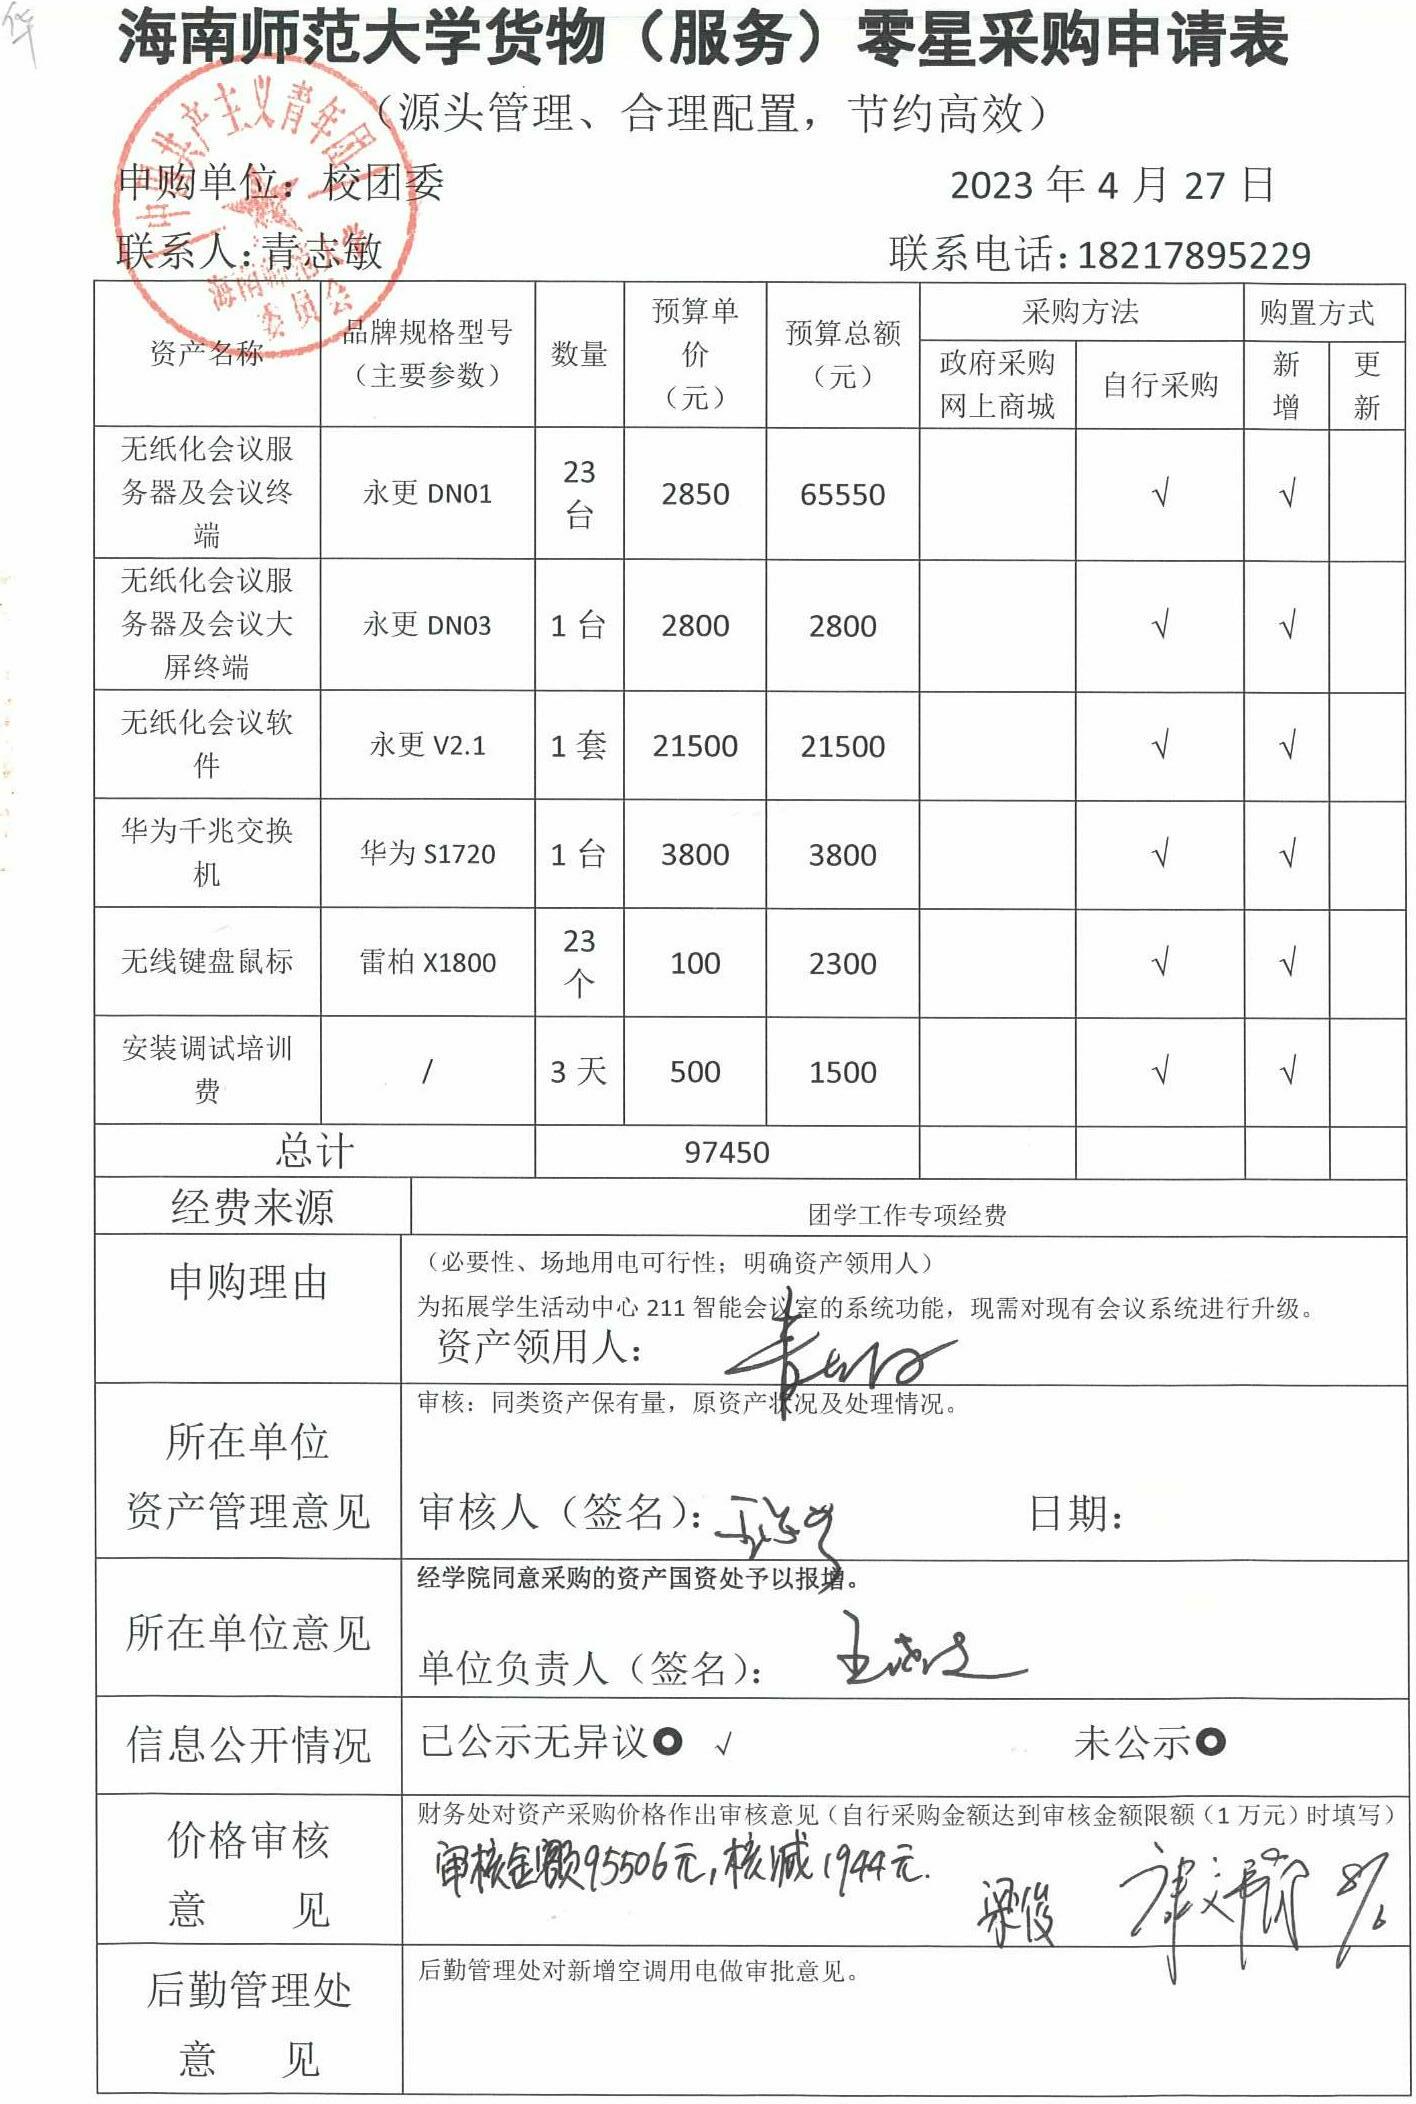 海南师范大学货物（服务）零星采购申请表
（源头管理、合理配置，节约高效）
中国共产主义青年团
海南师范大学
委员会
申购单位：校团委 2023年4月27日
联系人：青志敏 联系电话：18217895229
资产名称 品牌规格型号（主要参数） 数量 预算单价（元） 预算总额（元） 采购方法 购置方式
政府采购网上商城 自行采购 新增 更新
无纸化会议服务器及会议终端 永更 DN01 23台 2850 65550 √ √
无纸化会议服务器及会议大屏终端 永更 DN03 1台 2800 2800 √ √
无纸化会议软件 永更 V2.1 1套 21500 21500 √ √
华为千兆交换机 华为 S1720 1台 3800 3800 √ √
无线键盘鼠标 雷柏 X1800 23个 100 2300 √ √
安装调试培训费 / 3天 500 1500 √ √
总计 97450
经费来源 团学工作专项经费
申购理由 （必要性、场地用电可行性；明确资产领用人）
为拓展学生活动中心 211 智能会议室的系统功能，现需对现有会议系统进行升级。
资产领用人：
所在单位资产管理意见 审核：同类资产保有量，原资产状况及处理情况。
审核人（签名）： 日期：
所在单位意见 经学院同意采购的资产国资处予以报增。
单位负责人（签名）：
信息公开情况 已公示无异议 √ 未公示
价格审核意见 财务处对资产采购价格作出审核意见（自行采购金额达到审核金额限额（1万元）时填写）
审核金额95506元，核减1944元.
梁俊 8/6
后勤管理处意见 后勤管理处对新增空调用电做审批意见。